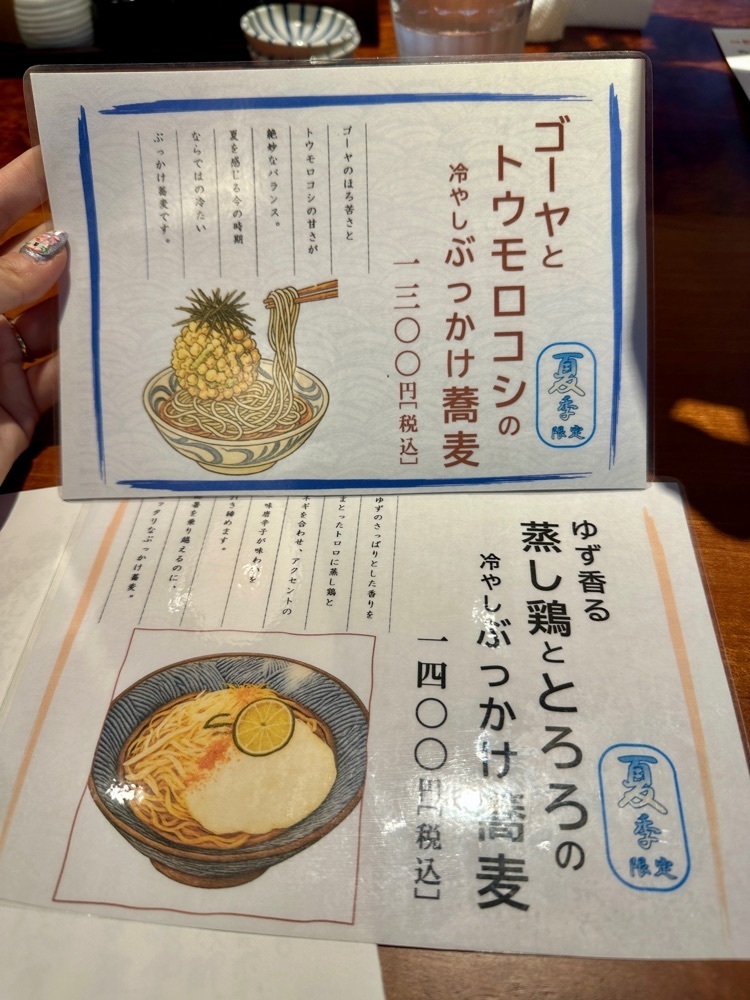 ゴーヤと
トウモロコシの
冷やしぶっかけ蕎麦
一三〇〇円[税込]
夏季
限定
ゴーヤのほろ苦さと
トウモロコシの甘さが
絶妙なバランス。
夏を感じる今の時期
ならではの冷たい
ぶっかけ蕎麦です。
ゆず香る
蒸し鶏ととろろの
冷やしぶっかけ蕎麦
一四〇〇円[税込]
夏季
限定
ゆずのさっぱりとした香りを
まとったトロロに蒸し鶏と
ネギを合わせ、アクセントの
味唐辛子が味わいを
き締めます。
暑を乗り越えるのに、
ぶっかけ蕎麦。